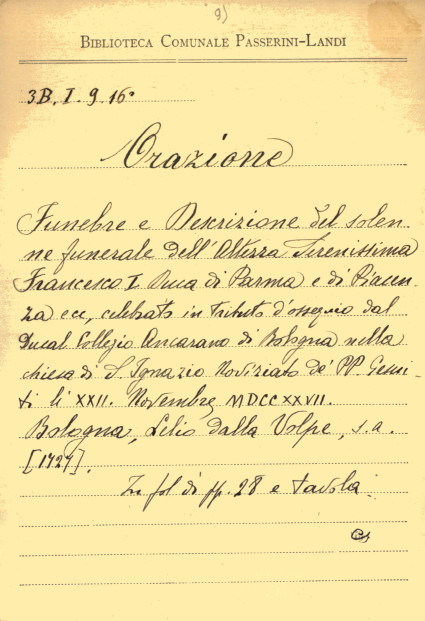 9)
BIBLIOTECA COMUNALE PASSERINI-LANDI
3B. I. 9. 16º
Orazione
Funebre e Descrizione del solen-
ne funerale dell'Altezza Serenissima
Francesco I Duca di Parma e di Piacen-
za ecc, celebrato in Tributo d'ossequio dal
Ducal Collegio Ancarano di Bologna nella
chiesa di S. Ignazio Noviziato de' PP. Gesui-
ti li XXII. Novembre MDCCXXVII.
Bologna, Lelio dalla Volpe, s.a.
[1727].
In fol di pp. 28 e tavola